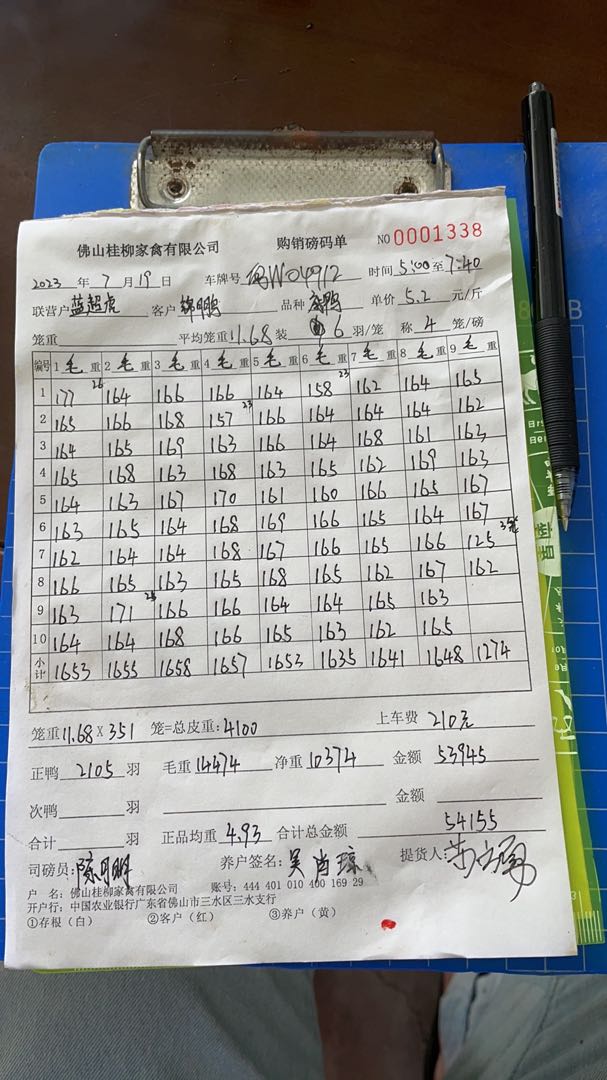 佛山桂柳家禽有限公司 购销磅码单 NO 0001338
2023 年 7 月 19 日 车牌号 W04912 时间 5:00 至 7:40
联营户 蓝超虎 客户 锦鹏 品种 单价 5.2 元/斤
笼重 平均笼重 11.68 装 6 羽/笼 称 4 笼/磅
编号 1 毛 重 2 毛 重 3 毛 重 4 毛 重 5 毛 重 6 毛 重 7 毛 重 8 毛 重 9 毛 重
1 177 26 164 166 166 164 158 23 162 164 165
2 165 166 168 157 23 166 164 164 164 162
3 164 165 169 163 166 164 168 161 163
4 165 168 163 168 163 165 162 169 163
5 164 163 167 170 161 160 166 165 167
6 163 165 164 168 169 166 165 164 167
7 162 164 164 168 167 166 165 166 125 3笼
8 166 165 163 165 168 165 162 167 162
9 163 171 166 166 164 164 165 163
10 164 164 168 166 165 163 162 165
小计 1653 1655 1658 1657 1653 1635 1641 1648 1274
笼重 11.68 X 351 笼=总皮重: 4100 上车费 210元
正鸭 2105 羽 毛重 14474 净重 10374 金额 53945
次鸭 羽 金额
合计 羽 正品均重 4.93 合计总金额 54155
司磅员: 陈月鹏 养户签名: 吴肖琼 提货人:
户 名: 佛山桂柳家禽有限公司 账号: 444 401 010 400 169 29
开户行: 中国农业银行广东省佛山市三水区三水支行
①存根（白） ②客户（红） ③养户（黄）